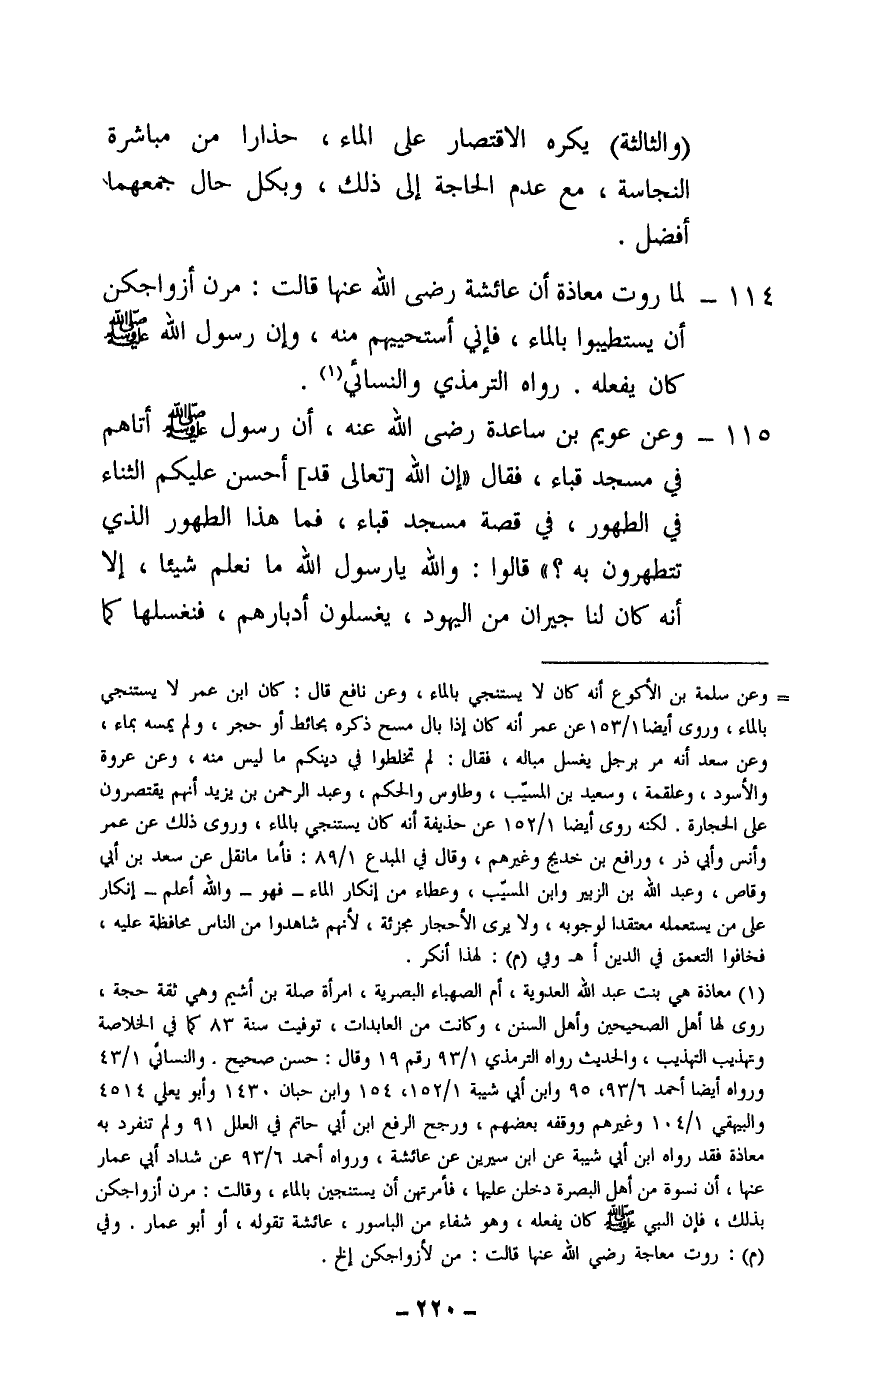 (والثالثة) يكره الاقتصار على الماء ، حذارا من مباشرة
النجاسة ، مع عدم الحاجة إلى ذلك ، وبكل حال جمعهما
أفضل .
١١٤ – لما روت معاذة أن عائشة رضى الله عنها قالت : مرن أزواجكن
أن يستطيبوا بالماء ، فإني أستحييهم منه ، وإن رسول الله ﷺ
كان يفعله . رواه الترمذي والنسائي(١) .
١١٥ – وعن عويم بن ساعدة رضى الله عنه ، أن رسول ﷺ أتاهم
في مسجد قباء ، فقال «إن الله [تعالى قد] أحسن عليكم الثناء
في الطهور ، في قصة مسجد قباء ، فما هذا الطهور الذي
تتطهرون به ؟» قالوا : والله يارسول الله ما نعلم شيئا ، إلا
أنه كان لنا جيران من اليهود ، يغسلون أدبارهم ، فنغسلها كما
= وعن سلمة بن الأكوع أنه كان لا يستنجي بالماء ، وعن نافع قال : كان ابن عمر لا يستنجي
بالماء ، وروى أيضا ١٥٣/١ عن عمر أنه كان إذا بال مسح ذكره بحائط أو حجر ، ولم يمسه بماء ،
وعن سعد أنه مر برجل يغسل مباله ، فقال : لم تخلطوا في دينكم ما ليس منه ، وعن عروة
والأسود ، وعلقمة ، وسعيد بن المسيّب ، وطاوس والحكم ، وعبد الرحمن بن يزيد أنهم يقتصرون
على الحجارة . لكنه روى أيضا ١٥٢/١ عن حذيفة أنه كان يستنجي بالماء ، وروى ذلك عن عمر
وأنس وأبي ذر ، ورافع بن خديج وغيرهم ، وقال في المبدع ٨٩/١ : فأما مانقل عن سعد بن أبي
وقاص ، وعبد الله بن الزبير وابن المسيّب ، وعطاء من إنكار الماء – فهو – والله أعلم – إنكار
على من يستعمله معتقدا لوجوبه ، ولا يرى الأحجار مجزئة ، لأنهم شاهدوا من الناس محافظة عليه ،
فخافوا التعمق في الدين أ هـ وفي (م) : لهذا أنكر .
(١) معاذة هي بنت عبد الله العدوية ، أم الصهباء البصرية ، امرأة صلة بن أشيم وهي ثقة حجة ،
روى لها أهل الصحيحين وأهل السنن ، وكانت من العابدات ، توفيت سنة ٨٣ كما في الخلاصة
وتهذيب التهذيب ، والحديث رواه الترمذي ٩٣/١ رقم ١٩ وقال : حسن صحيح . والنسائي ٤٣/١
ورواه أيضا أحمد ٩٣/٦، ٩٥ وابن أبي شيبة ١٥٢/١، ١٥٤ وابن حبان ١٤٣٠ وأبو يعلى ٤٥١٤
والبيهقي ١٠٤/١ وغيرهم ووقفه بعضهم ، ورجح الرفع ابن أبي حاتم في العلل ٩١ ولم تنفرد به
معاذة فقد رواه ابن أبي شيبة عن ابن سيرين عن عائشة ، ورواه أحمد ٩٣/٦ عن شداد أبي عمار
عنها ، أن نسوة من أهل البصرة دخلن عليها ، فأمرتهن أن يستنجين بالماء ، وقالت : مرن أزواجكن
بذلك ، فإن النبي ﷺ كان يفعله ، وهو شفاء من الباسور ، عائشة تقوله ، أو أبو عمار . وفي
(م) : روت معاجة رضي الله عنها قالت : من لأزواجكن إلخ .
– ٢٢٠ –